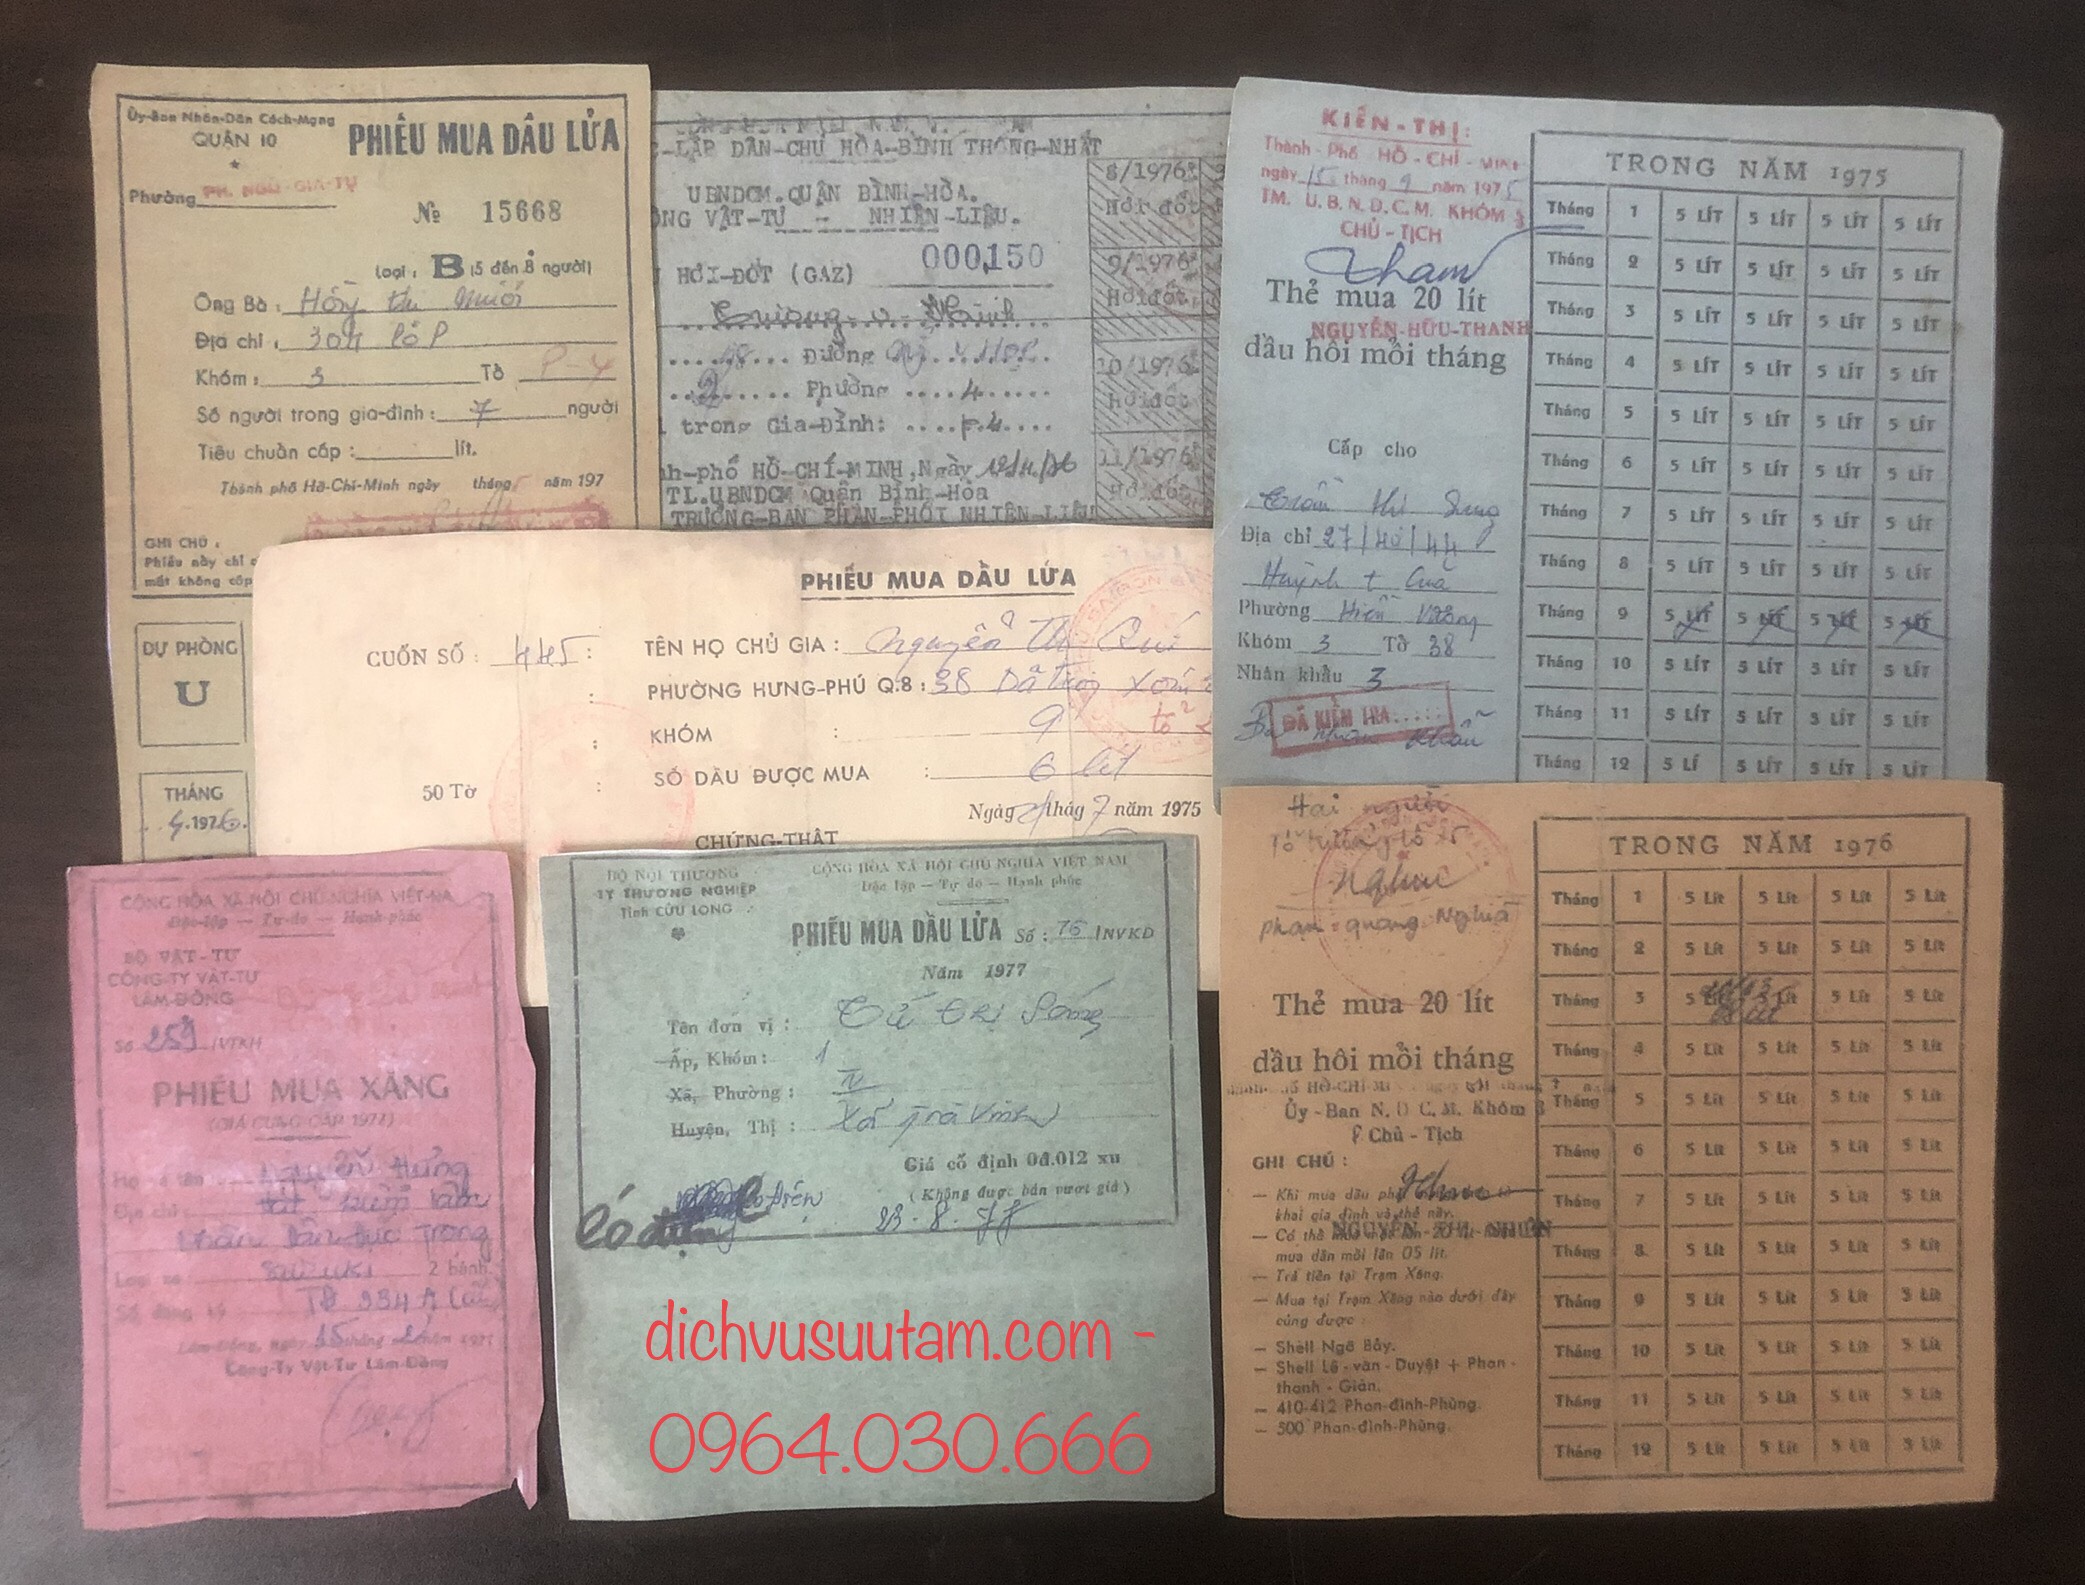 Ủy-Ban Nhân-Dân Cách-Mạng
QUẬN 10
PHIẾU MUA DẦU LỬA
Phường PH. NGÔ-GIA-TỰ
№ 15668
Loại: B (5 đến 8 người)
Ông Bà:
Địa chỉ: 304 lô P
Khóm: 3 Tổ P-4
Số người trong gia-đình: 7 người
Tiêu chuẩn cấp: lít.
Thành phố Hồ-Chí-Minh ngày tháng năm 197
GHI CHÚ:
Phiếu này chỉ
mất không cấp
DỰ PHÒNG
U
THÁNG
4.1976
LẬP DÂN-CHỦ HÒA-BÌNH THỐNG-NHẤT
UBNDCM.QUẬN BÌNH-HÒA.
VẬT-TƯ - NHIÊN-LIỆU.
HƠI-ĐỐT (GAZ) 000,150
Đường
2 Phường 4
trong Gia-Đình:
HỒ-CHÍ-MINH, Ngày
TL.UBNDCM Quận Bình-Hòa
TRƯỞNG-BAN PHÂN-PHỐI NHIÊN-LIỆU
8/1976
Hơi đốt
9/1976
Hơi đốt
10/1976
Hơi đốt
11/1976
Hơi đốt
KIẾN-THỊ:
Thành-Phố HỒ-CHÍ-MINH
ngày 15 tháng 9 năm 1975
TM. U.B.N.D.C.M. KHÓM 3
CHỦ-TỊCH
Thẻ mua 20 lít
NGUYỄN-HỮU-THANH
dầu hôi mỗi tháng
Cấp cho
Địa chỉ 27/40/44
Huỳnh t Của
Phường Hiền Vương
Khóm 3 Tổ 38
Nhân khẩu 3
ĐÃ KIỂM TRA
TRONG NĂM 1975
Tháng 1 5 LÍT 5 LÍT 5 LÍT 5 LÍT
Tháng 2 5 LÍT 5 LÍT 5 LÍT 5 LÍT
Tháng 3 5 LÍT 5 LÍT 5 LÍT 5 LÍT
Tháng 4 5 LÍT 5 LÍT 5 LÍT 5 LÍT
Tháng 5 5 LÍT 5 LÍT 5 LÍT 5 LÍT
Tháng 6 5 LÍT 5 LÍT 5 LÍT 5 LÍT
Tháng 7 5 LÍT 5 LÍT 5 LÍT 5 LÍT
Tháng 8 5 LÍT 5 LÍT 5 LÍT 5 LÍT
Tháng 9 5 LÍT 5 LÍT 5 LÍT 5 LÍT
Tháng 10 5 LÍT 5 LÍT 5 LÍT 5 LÍT
Tháng 11 5 LÍT 5 LÍT 5 LÍT 5 LÍT
Tháng 12 5 LÍ 5 LÍT 5 LÍT 5 LÍT
PHIẾU MUA DẦU LỬA
CUỐN SỐ: 445
50 TỜ
TÊN HỌ CHỦ GIA: Nguyễn Thị
PHƯỜNG HƯNG-PHÚ Q.8: 38
KHÓM: 9
SỐ DẦU ĐƯỢC MUA: 6 lít
Ngày thág 7 năm 1975
CHỨNG-THẬT
CỘNG HÒA XÃ HỘI CHỦ NGHĨA VIỆT-NA
Độc-lập — Tự-do — Hạnh-phúc
BỘ VẬT-TƯ
CÔNG-TY VẬT-TƯ
LÂM-ĐỒNG
Số 259 /VTKH
PHIẾU MUA XĂNG
(GIÁ CUNG CẤP 1977)
Họ và tên
Địa chỉ:
Loại xe SUZUKI 2 bánh
Số đăng ký
Lâm-Đồng, ngày 15 tháng năm 1977
Công-Ty Vật-Tư Lâm-Đồng
BỘ NỘI THƯƠNG
TY THƯƠNG NGHIỆP
Tỉnh CỬU LONG
CỘNG HÒA XÃ HỘI CHỦ NGHĨA VIỆT NAM
Độc lập — Tự do — Hạnh phúc
PHIẾU MUA DẦU LỬA Số: 76 /NVKD
Năm 1977
Tên đơn vị:
Ấp, Khóm: 1
Xã, Phường: IV
Huyện, Thị: Xã Trà Vinh
Giá cố định 0đ.012 xu
(Không được bán vượt giá)
23.8.77
Có điện
dichvusuutam.com -
0964.030.666
Hai người
Nghĩa
Phạm-quang Nghĩa
Thẻ mua 20 lít
dầu hôi mỗi tháng
Ủy-Ban N.D C.M. Khóm 3
Chủ-Tịch
GHI CHÚ:
— Khi mua dầu
khai gia đình và thẻ này.
NGUYỄN-THỊ-NHUẬN
— Có thể
mua dần mỗi lần 05 lít.
— Trả tiền tại Trạm Xăng.
— Mua tại Trạm Xăng nào dưới đây
cũng được:
— Shell Ngã Bảy.
— Shell Lê-văn-Duyệt + Phan-
thanh-Giản.
— 410-412 Phan-đình-Phùng.
— 500 Phan-đình-Phùng.
TRONG NĂM 1976
Tháng 1 5 Lít 5 Lít 5 Lít 5 Lít
Tháng 2 5 Lít 5 Lít 5 Lít 5 Lít
Tháng 3 5 Lít 5 Lít 5 Lít 5 Lít
Tháng 4 5 Lít 5 Lít 5 Lít 5 Lít
Tháng 5 5 Lít 5 Lít 5 Lít 5 Lít
Tháng 6 5 Lít 5 Lít 5 Lít 5 Lít
Tháng 7 5 Lít 5 Lít 5 Lít 5 Lít
Tháng 8 5 Lít 5 Lít 5 Lít 5 Lít
Tháng 9 5 Lít 5 Lít 5 Lít 5 Lít
Tháng 10 5 Lít 5 Lít 5 Lít 5 Lít
Tháng 11 5 Lít 5 Lít 5 Lít 5 Lít
Tháng 12 5 Lít 5 Lít 5 Lít 5 Lít